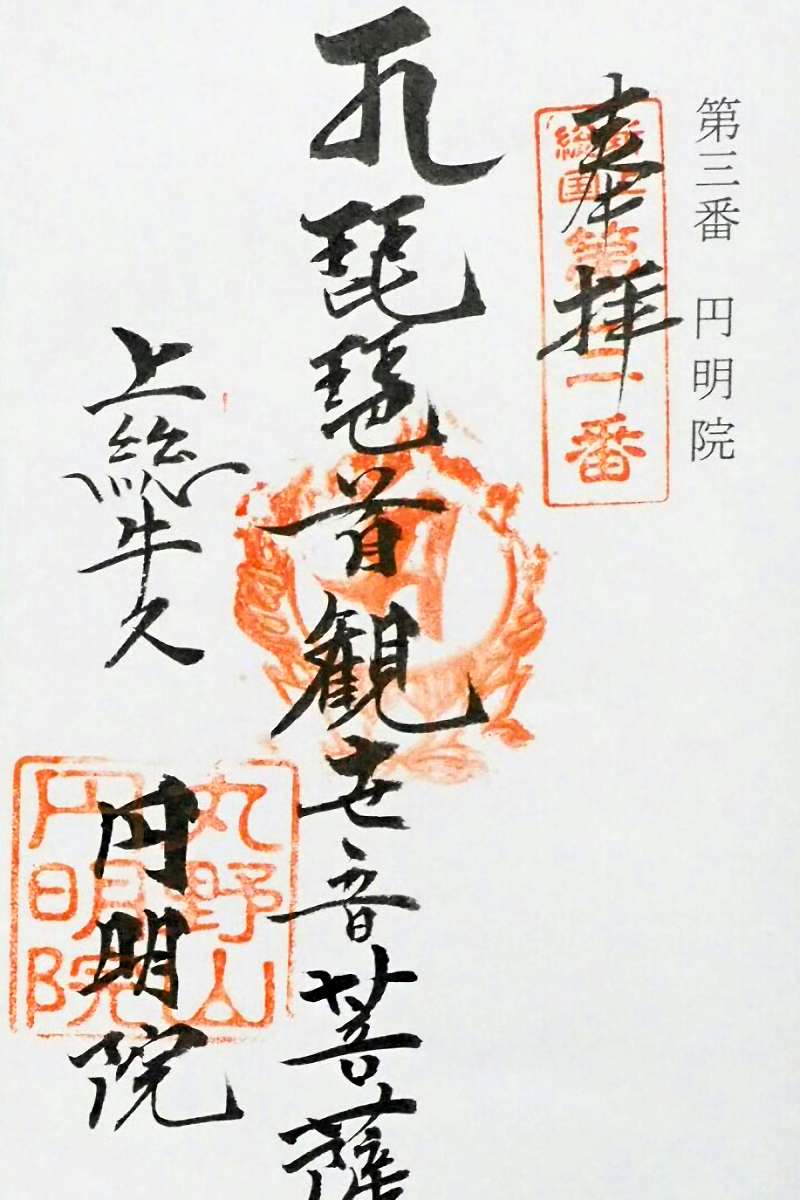 第三番 円明院
奉拝
新上
総国
第三番
琵琶首観世音菩薩
上総牛久
円明院
丸野山
円明院